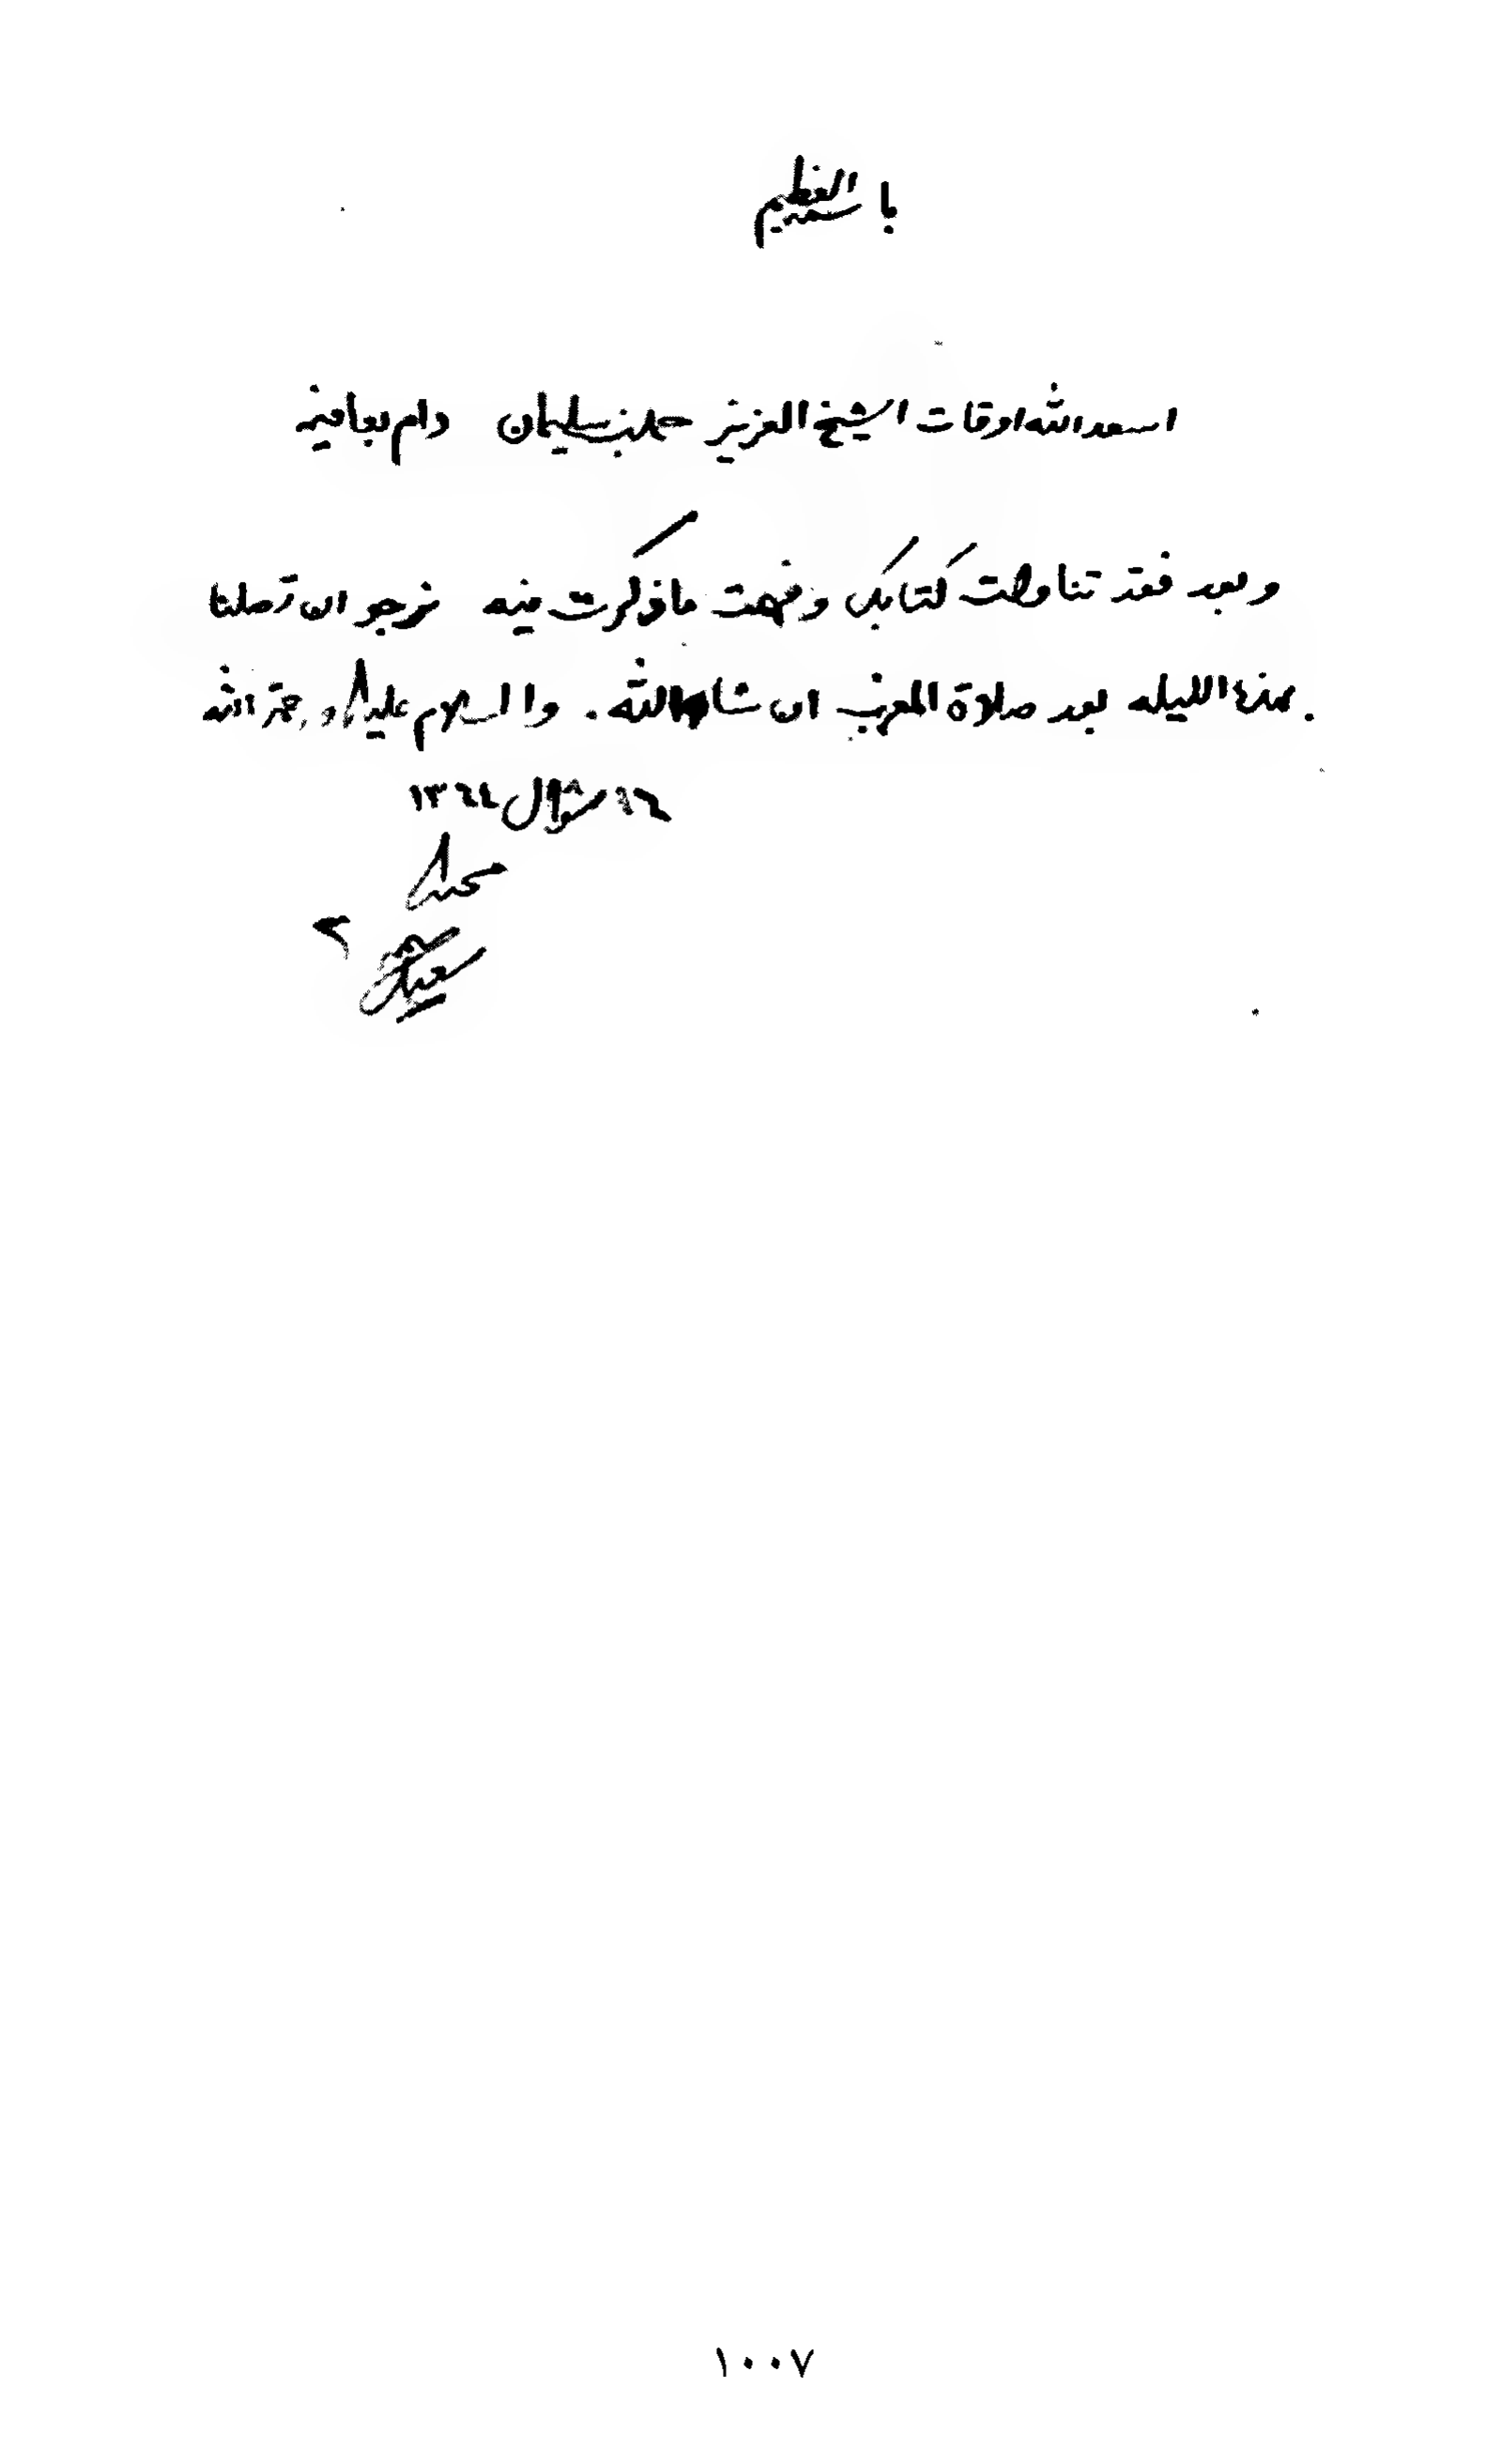 باسمه العظيم
اسعد الله اوقات الشيخ العزيز حمد بن سليمان دام بعافيه
وبعد فقد تناولت كتابك وفهمت ما ذكرت فيه نرجو ان تصلنا
بهذه الليله بعد صلاة المغرب ان شاء الله . والسلام عليكم ورحمة الله
١٦ شوال ١٣٦٤
محبك
سعيد
١٠٠٧